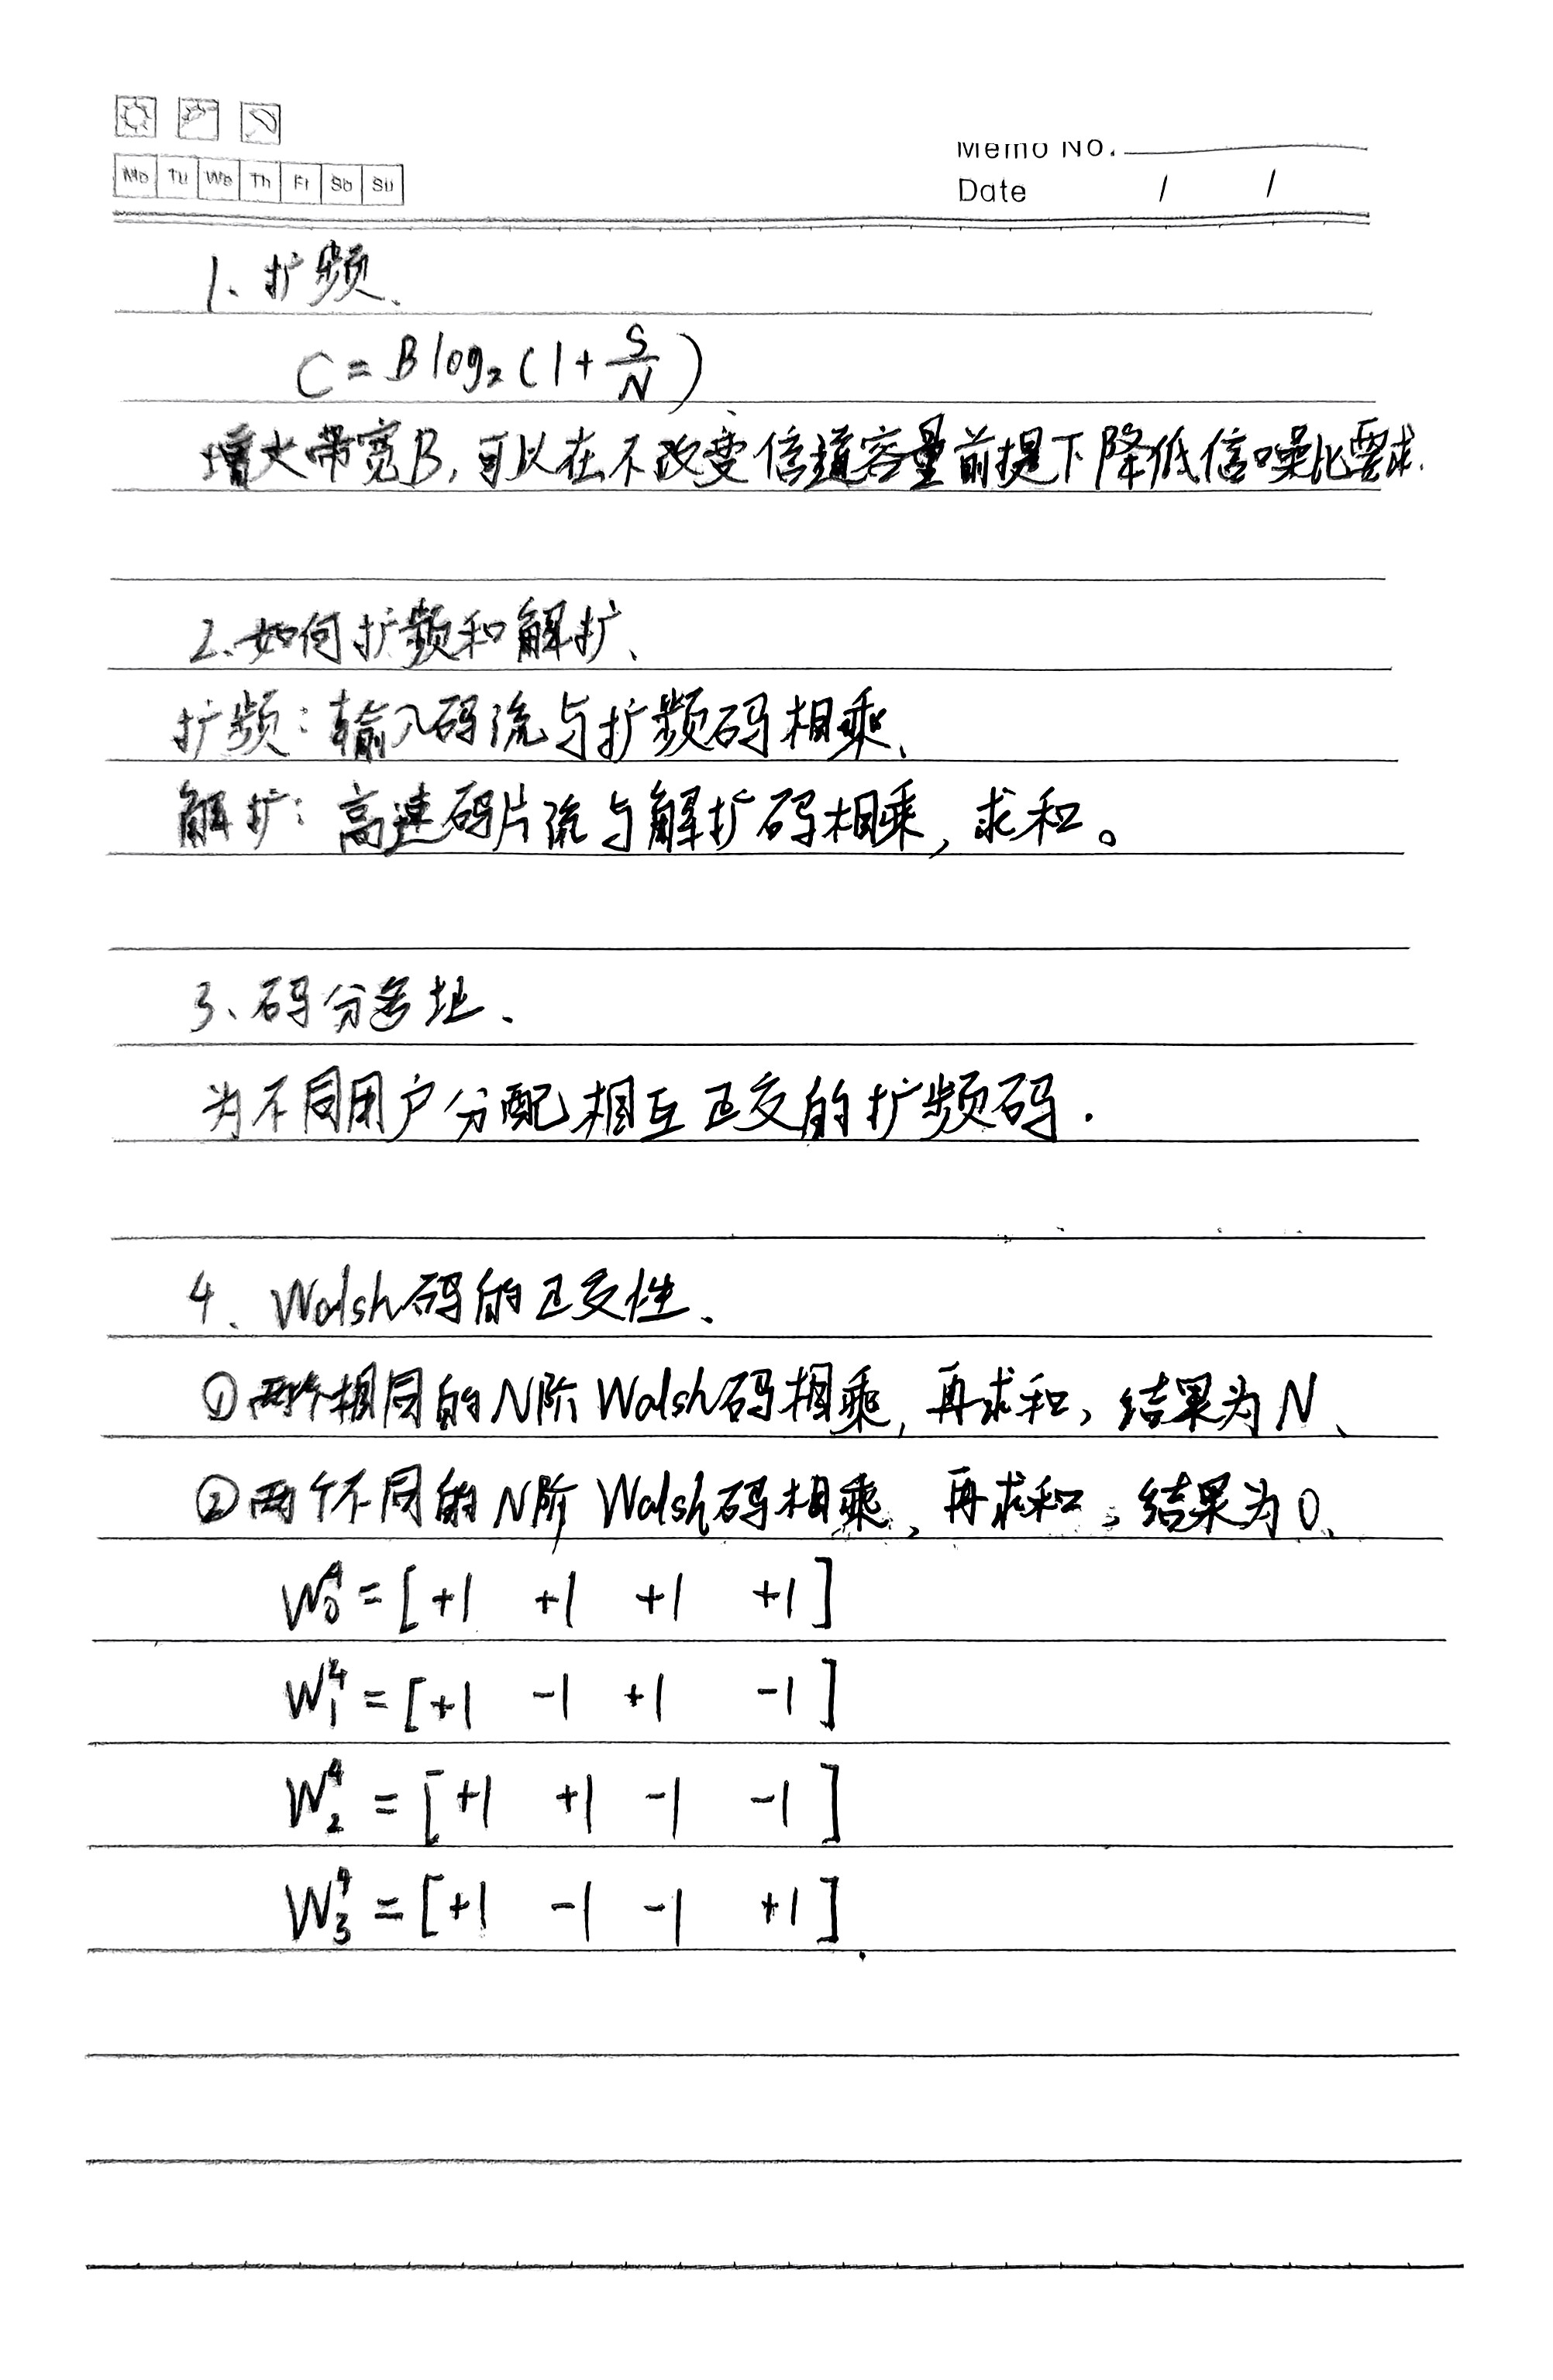 Memo No.
Mo Tu We Th Fr Sa Su
Date / /
1、扩频、
C = B log₂(1+S/N)
增大带宽B,可以在不改变信道容量前提下降低信噪比要求.
2、如何扩频和解扩、
扩频:输入码流与扩频码相乘、
解扩:高速码片流与解扩码相乘,求和。
3、码分多址、
为不同用户分配相互正交的扩频码.
4、Walsh码的正交性、
①两个相同的N阶Walsh码相乘,再求和,结果为N、
②两个不同的N阶Walsh码相乘,再求和,结果为0、
W₀⁴ = [+1 +1 +1 +1]
W₁⁴ = [+1 -1 +1 -1]
W₂⁴ = [+1 +1 -1 -1]
W₃⁴ = [+1 -1 -1 +1]